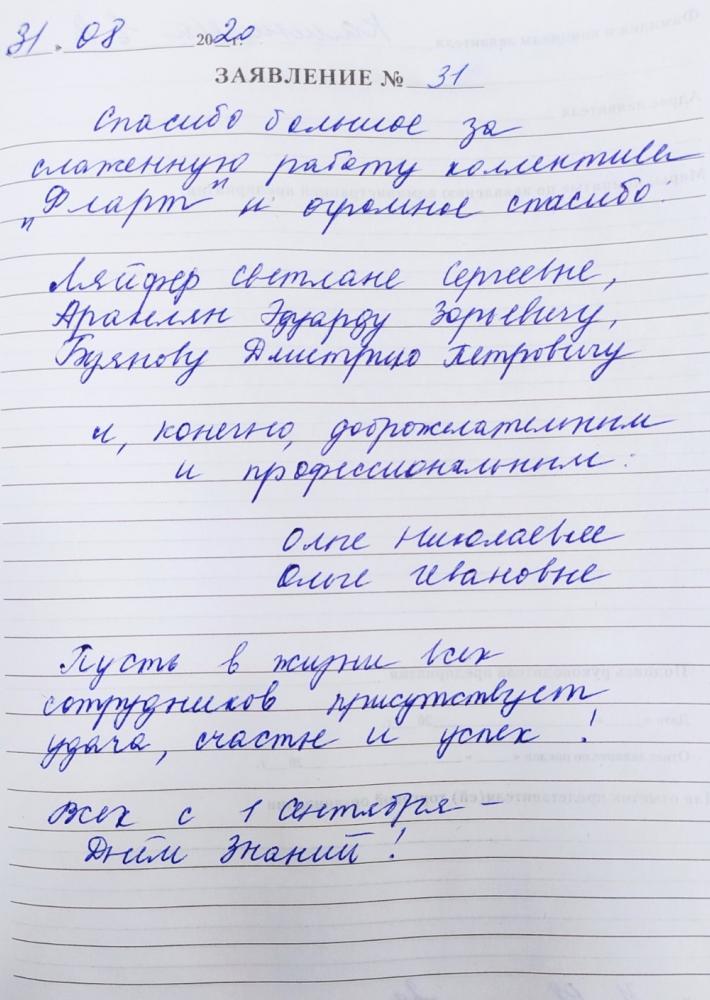 31. 08 2020 г.
ЗАЯВЛЕНИЕ № 31
Спасибо большое за
слаженную работу коллектива
"Фларт" и огромное спасибо:
Ляйфер Светлане Сергеевне,
Аракелян Эдуарду Зорьевичу,
Буянову Дмитрию Петровичу
и, конечно, доброжелательным
и профессиональным:
Ольге Николаевне
Ольге Ивановне
Пусть в жизни всех
сотрудников присутствует
удача, счастье и успех!
Всех с 1 Сентября –
Днём Знаний!